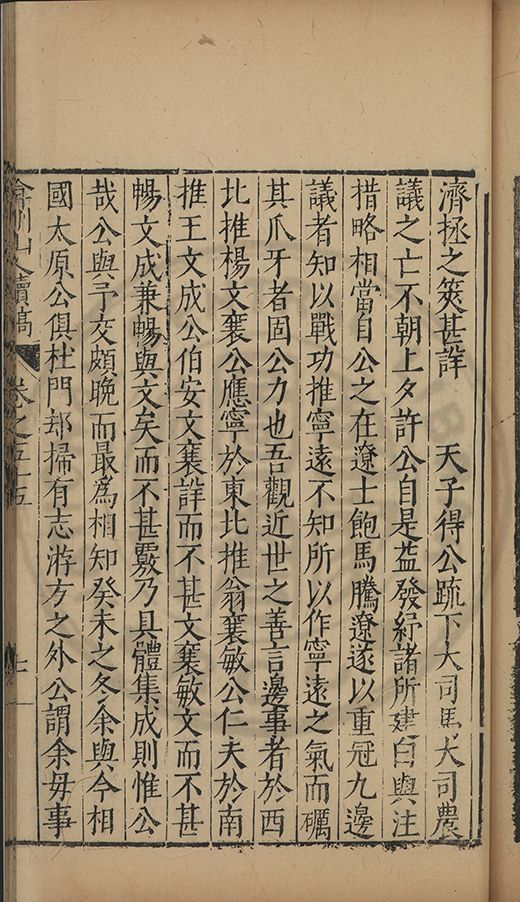 濟拯之筴甚詳　　天子得公疏下大司馬大司農
議之亡不朝上夕許公自是益發紓諸所建白與注
措略相當自公之在遼士飽馬騰遼遂以重冠九邊
議者知以戰功推寧遠不知所以作寧遠之氣而礪
其爪牙者固公力也吾觀近世之善言邊事者於西
北推楊文襄公應寧於東北推翁襄敏公仁夫於南
推王文成公伯安文襄詳而不甚文襄敏文而不甚
暢文成兼暢與文矣而不甚覈乃具體集成則惟公
哉公與予交頗晚而最為相知癸未之冬余與今相
國太原公俱杜門却掃有志游方之外公謂余毋事
弇州山人續稿 卷之五十五 七